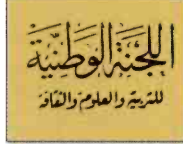 اللجنة الوطنية
للتربية والعلوم والثقافة